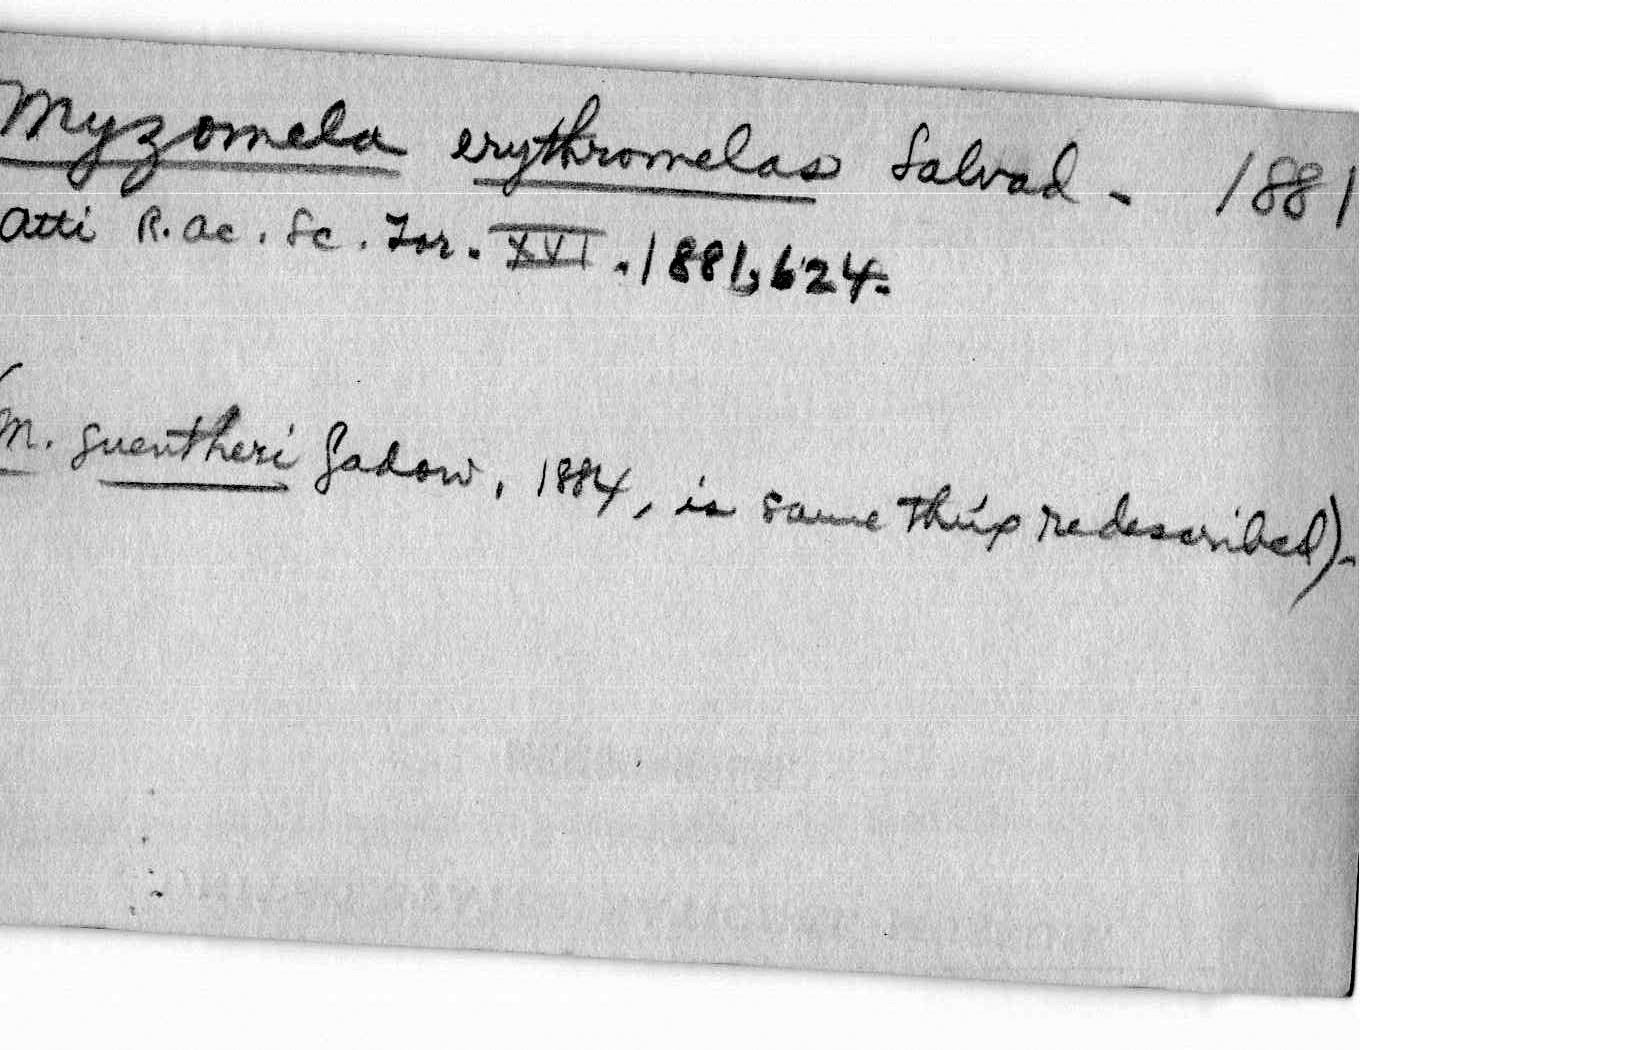 Myzomela erythromelas Salvad - 1881
Atti R. Ac. Sc. Tor. XVI. 1881, 624.
(M. guentheri Gadow, 1884, is same thing redescribed).